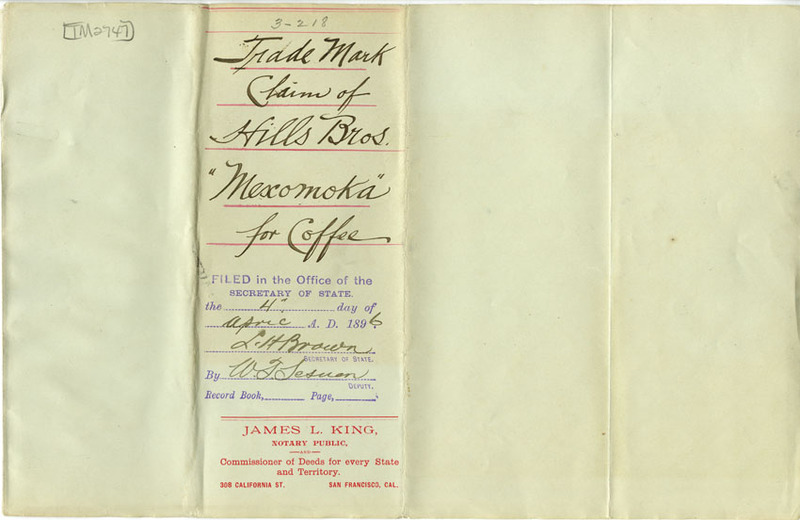 TM2747
3-218
Trade Mark
Claim of
Hills Bros.
"Mexomoka"
for Coffee
FILED in the Office of the
SECRETARY OF STATE.
the 4" day of
April A. D. 1896
L. H. Brown
SECRETARY OF STATE.
By W. T. Sesnon
DEPUTY.
Record Book, Page,
JAMES L. KING,
NOTARY PUBLIC,
AND
Commissioner of Deeds for every State
and Territory.
308 CALIFORNIA ST. SAN FRANCISCO, CAL.